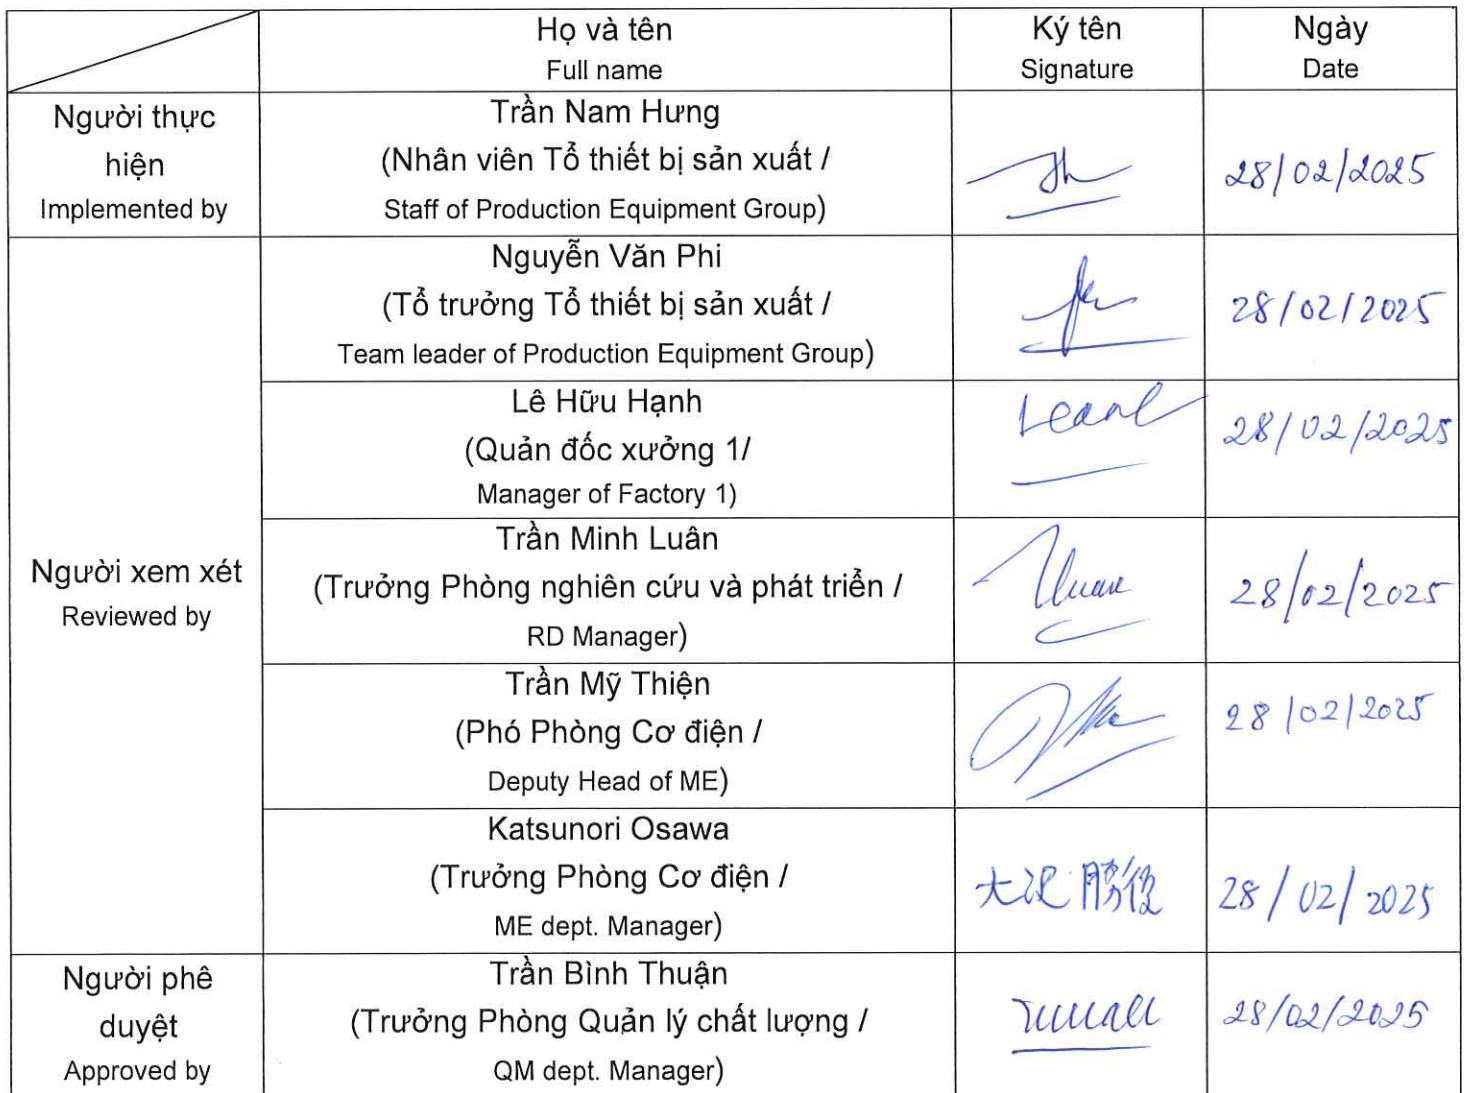 Họ và tên
Full name
Ký tên
Signature
Ngày
Date
Người thực
hiện
Implemented by
Trần Nam Hưng
(Nhân viên Tổ thiết bị sản xuất /
Staff of Production Equipment Group)
28/02/2025
Người xem xét
Reviewed by
Nguyễn Văn Phi
(Tổ trưởng Tổ thiết bị sản xuất /
Team leader of Production Equipment Group)
28/02/2025
Lê Hữu Hạnh
(Quản đốc xưởng 1/
Manager of Factory 1)
28/02/2025
Trần Minh Luân
(Trưởng Phòng nghiên cứu và phát triển /
RD Manager)
28/02/2025
Trần Mỹ Thiện
(Phó Phòng Cơ điện /
Deputy Head of ME)
28/02/2025
Katsunori Osawa
(Trưởng Phòng Cơ điện /
ME dept. Manager)
28/02/2025
Người phê
duyệt
Approved by
Trần Bình Thuận
(Trưởng Phòng Quản lý chất lượng /
QM dept. Manager)
28/02/2025